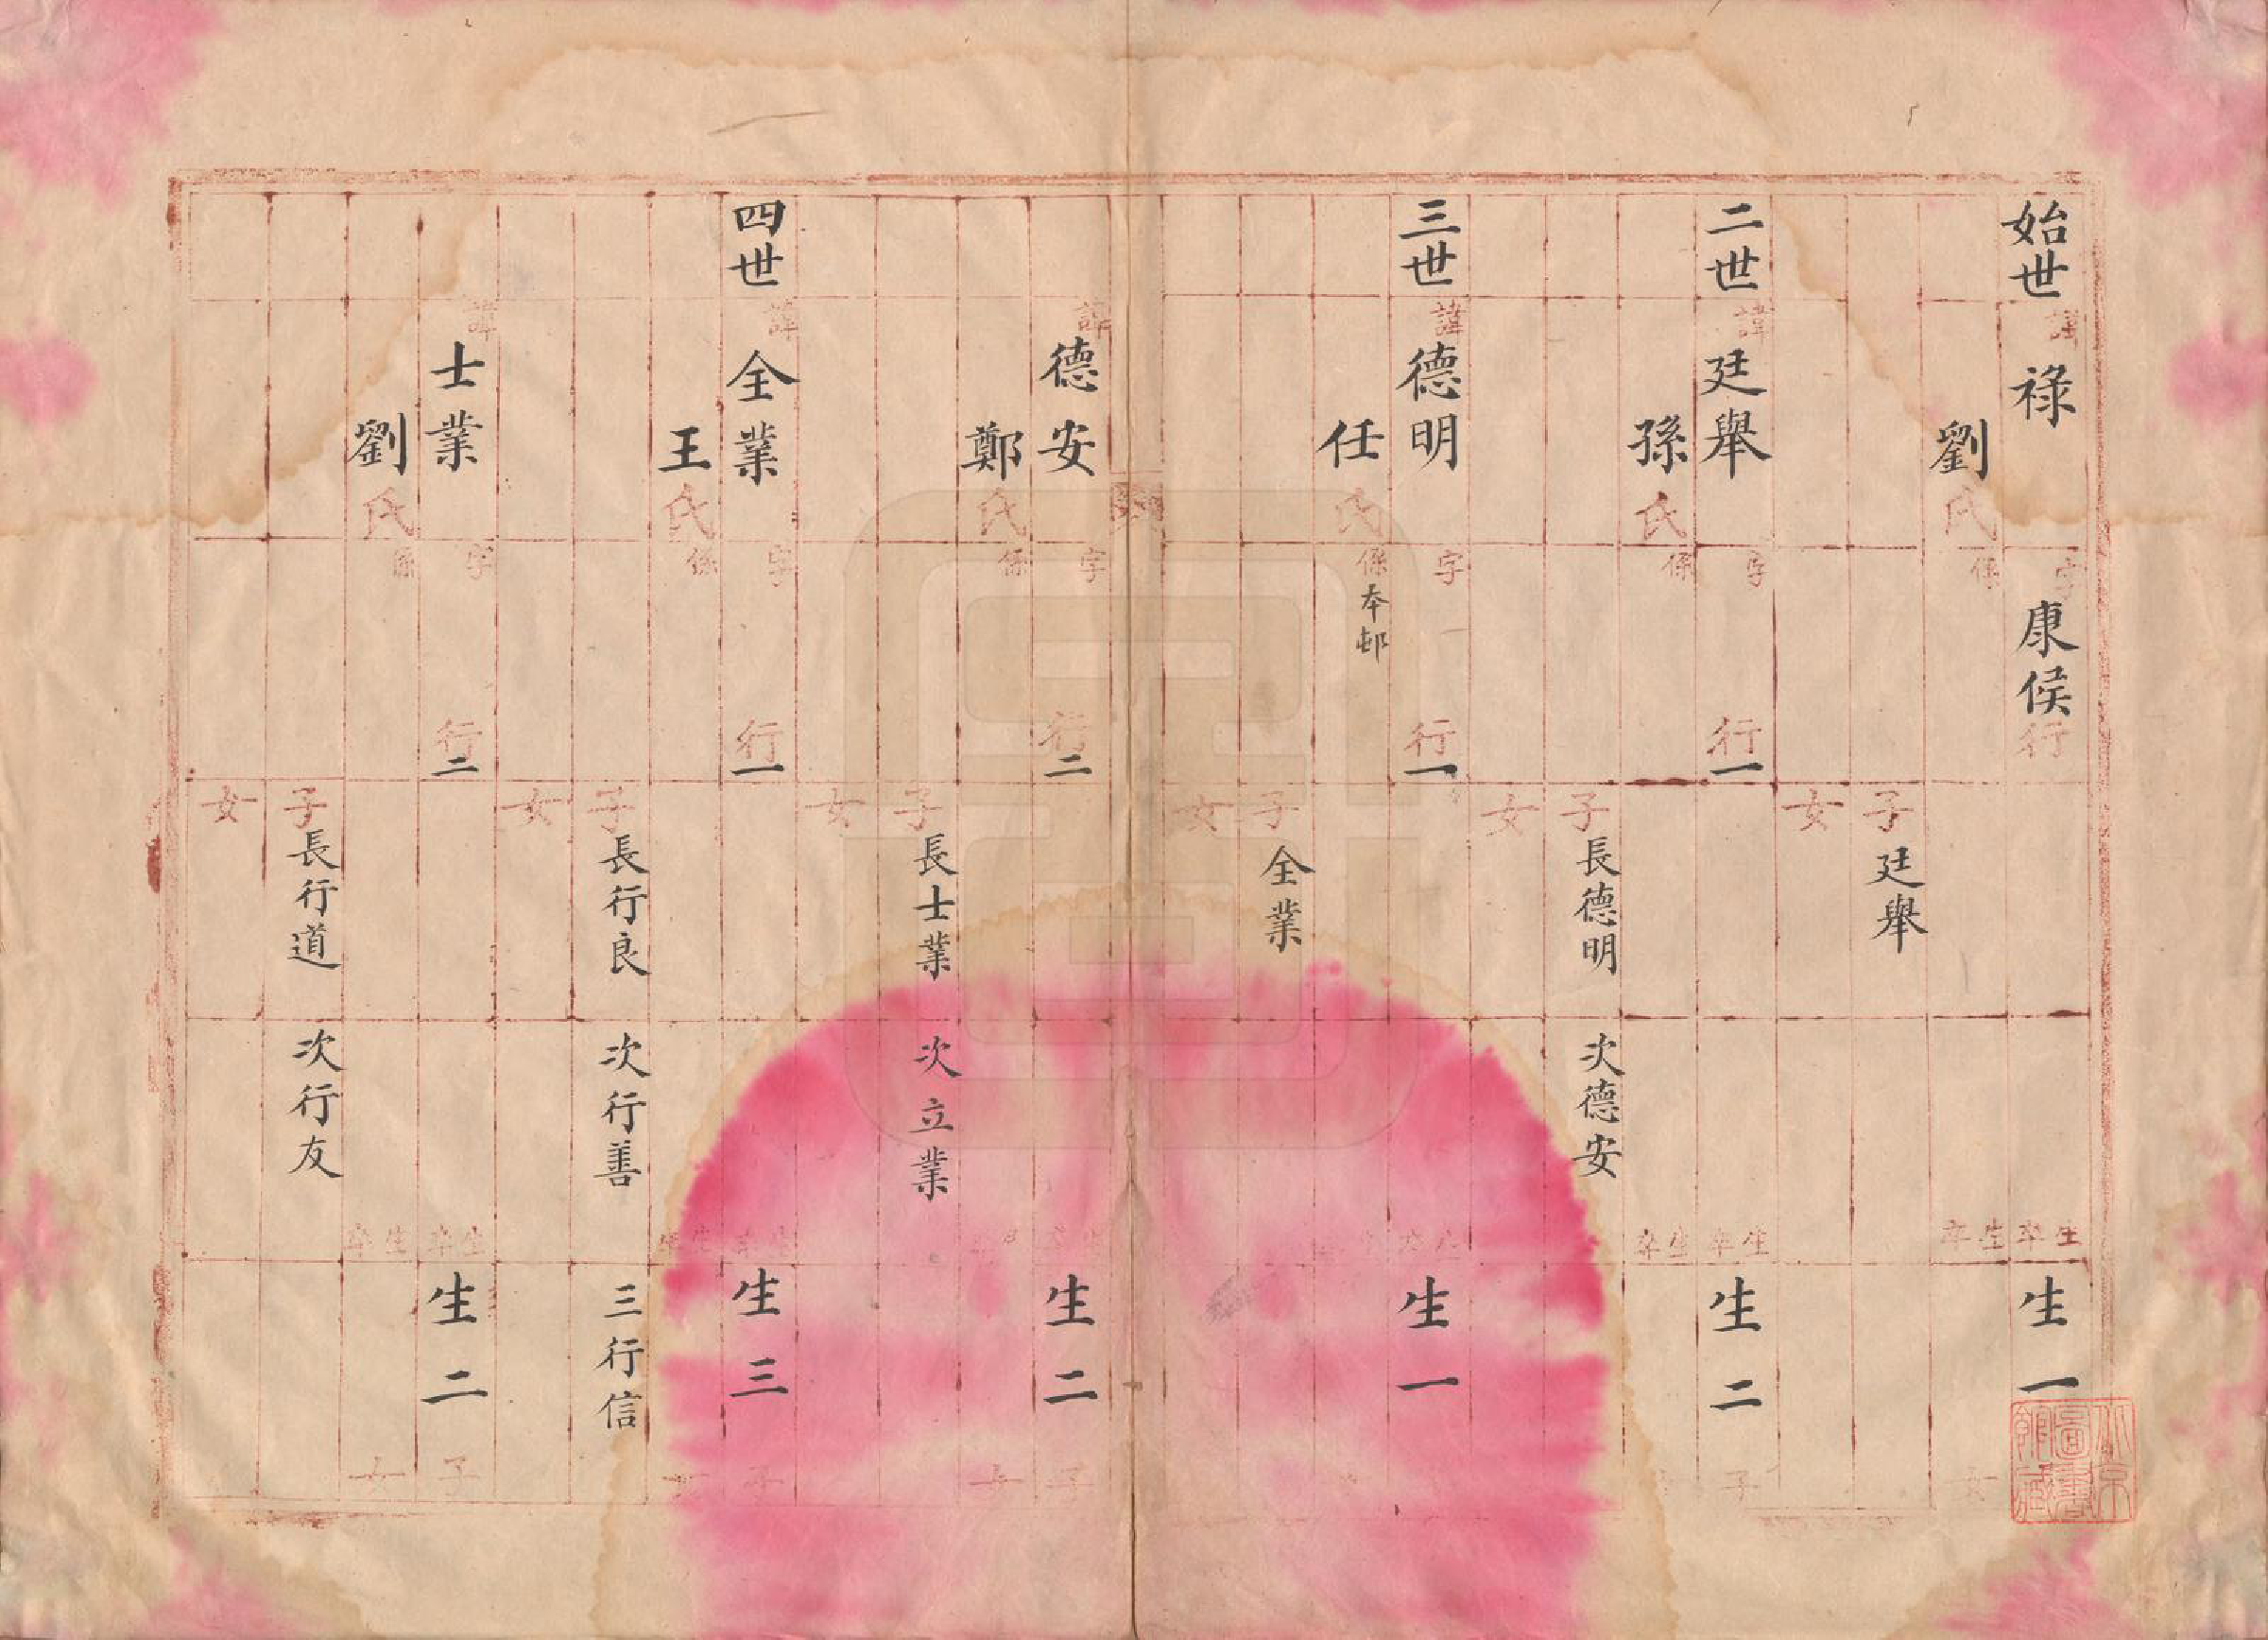 始世 諱 祿 字 康侯 行 生卒 生一
劉氏 係 生卒 女
子 廷舉
女
二世 諱 廷舉 字 行一 生卒 生二 子
孫氏 係 生卒
子 長德明 次德安
女
三世 諱 德明 字 行一 生一
任氏 係 本邨
子 全業
女
諱 德安 字 行二 生二 子
鄭氏 係 女
子 長士業 次立業
女
四世 諱 全業 字 行一 生三 子
王氏 係
子 長行良 次行善 三行信
女
諱 士業 字 行二 生卒 生二 子
劉氏 係 生卒 女
子 長行道 次行友
女
北京
圖書
館藏